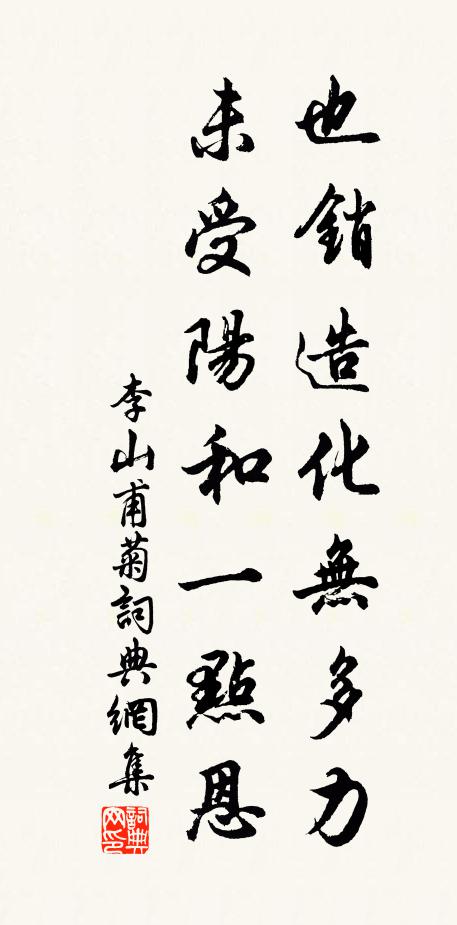 也銷造化無多力
未受陽和一點恩
李山甫菊詞典網集
詞典
网印